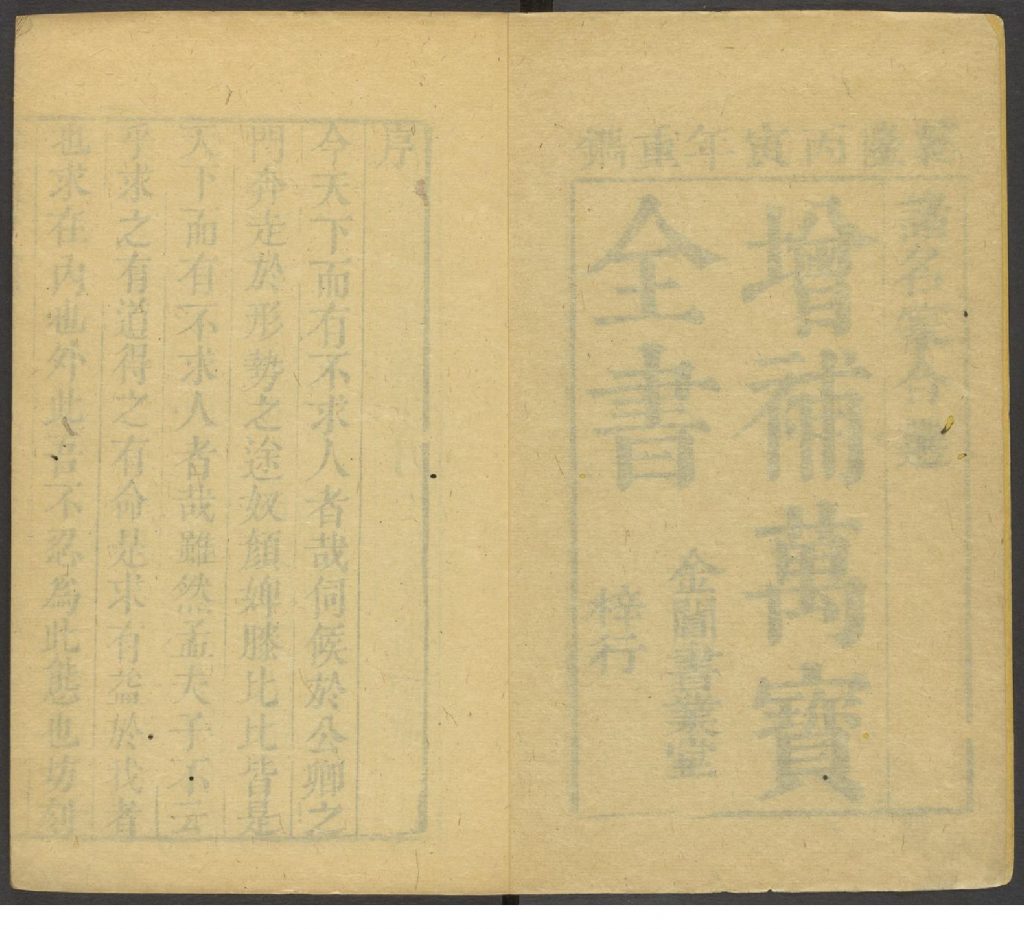 嘉慶丙寅年重鐫
諸名家合選
增補萬寶
全書
金閶書業堂
梓行
序
今天下而有不求人者哉伺候於公卿之
門奔走於形勢之途奴顏婢膝比比皆是
天下而有不求人者哉雖然孟夫子不云
乎求之有道得之有命是求有益於我者
也求在內也外此吾不忍為此態也坊刻